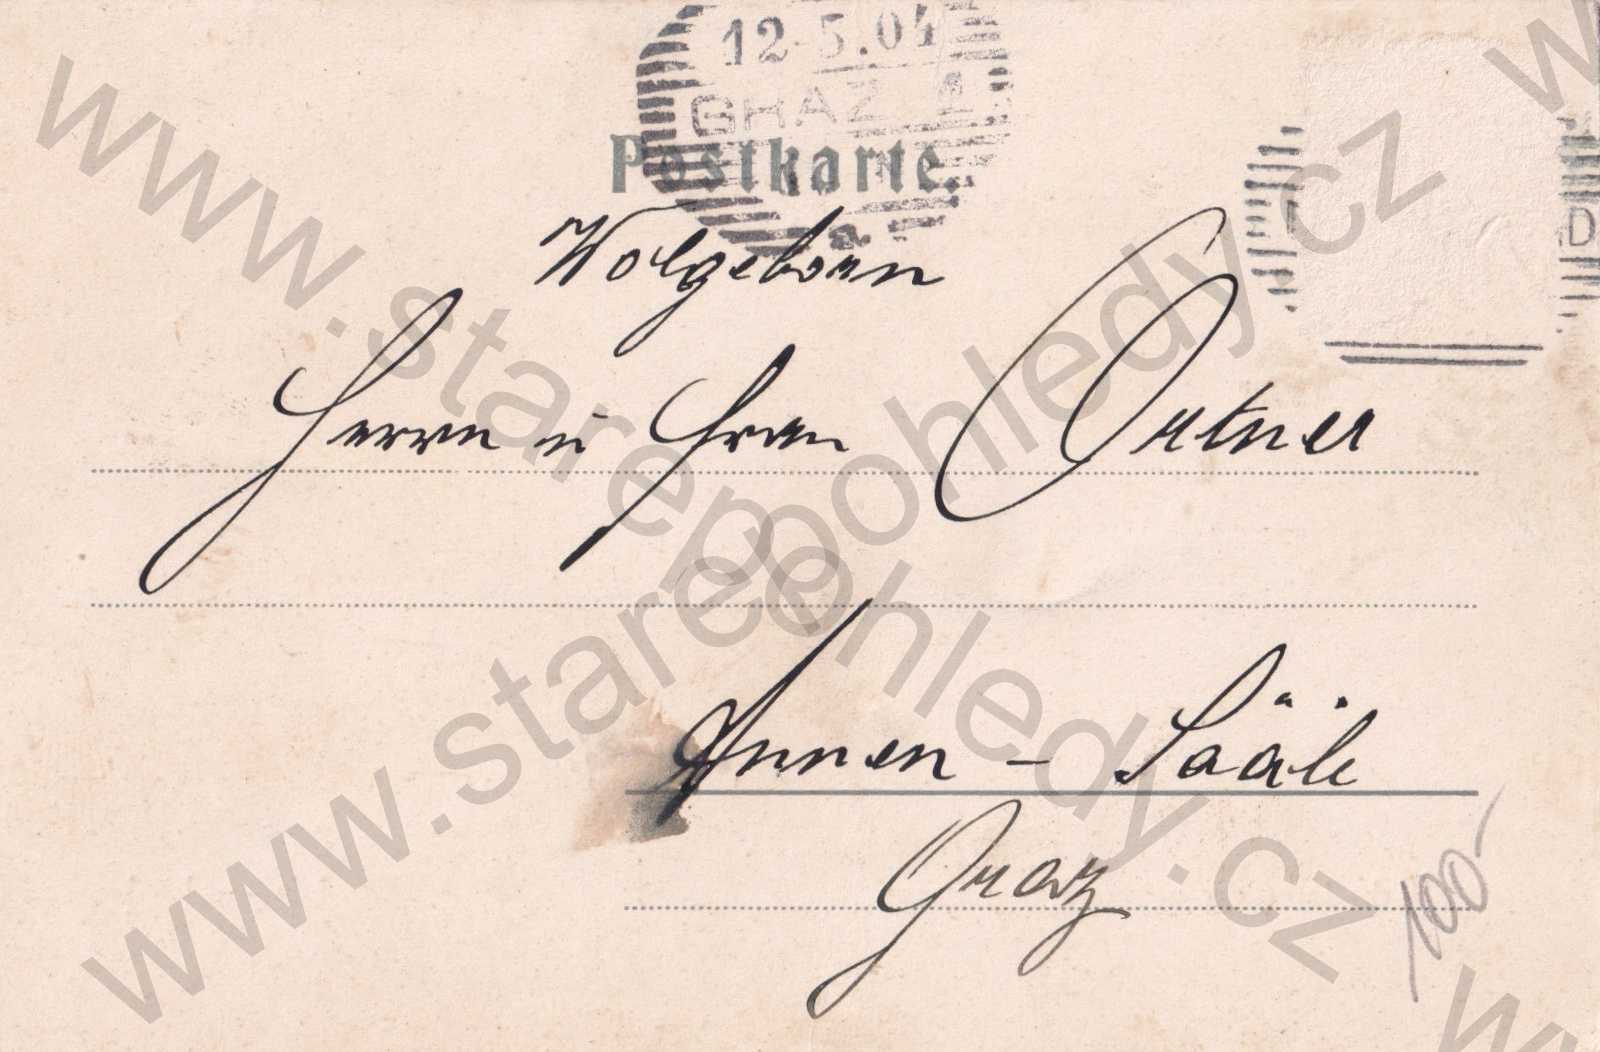 12.5.04
GRAZ
Postkarte.
a
D
Wolgeborn
Herrn u Frau Ortner
Annen - Sääle
Graz
100-
www.starepohledy.cz
www.starepohledy.cz